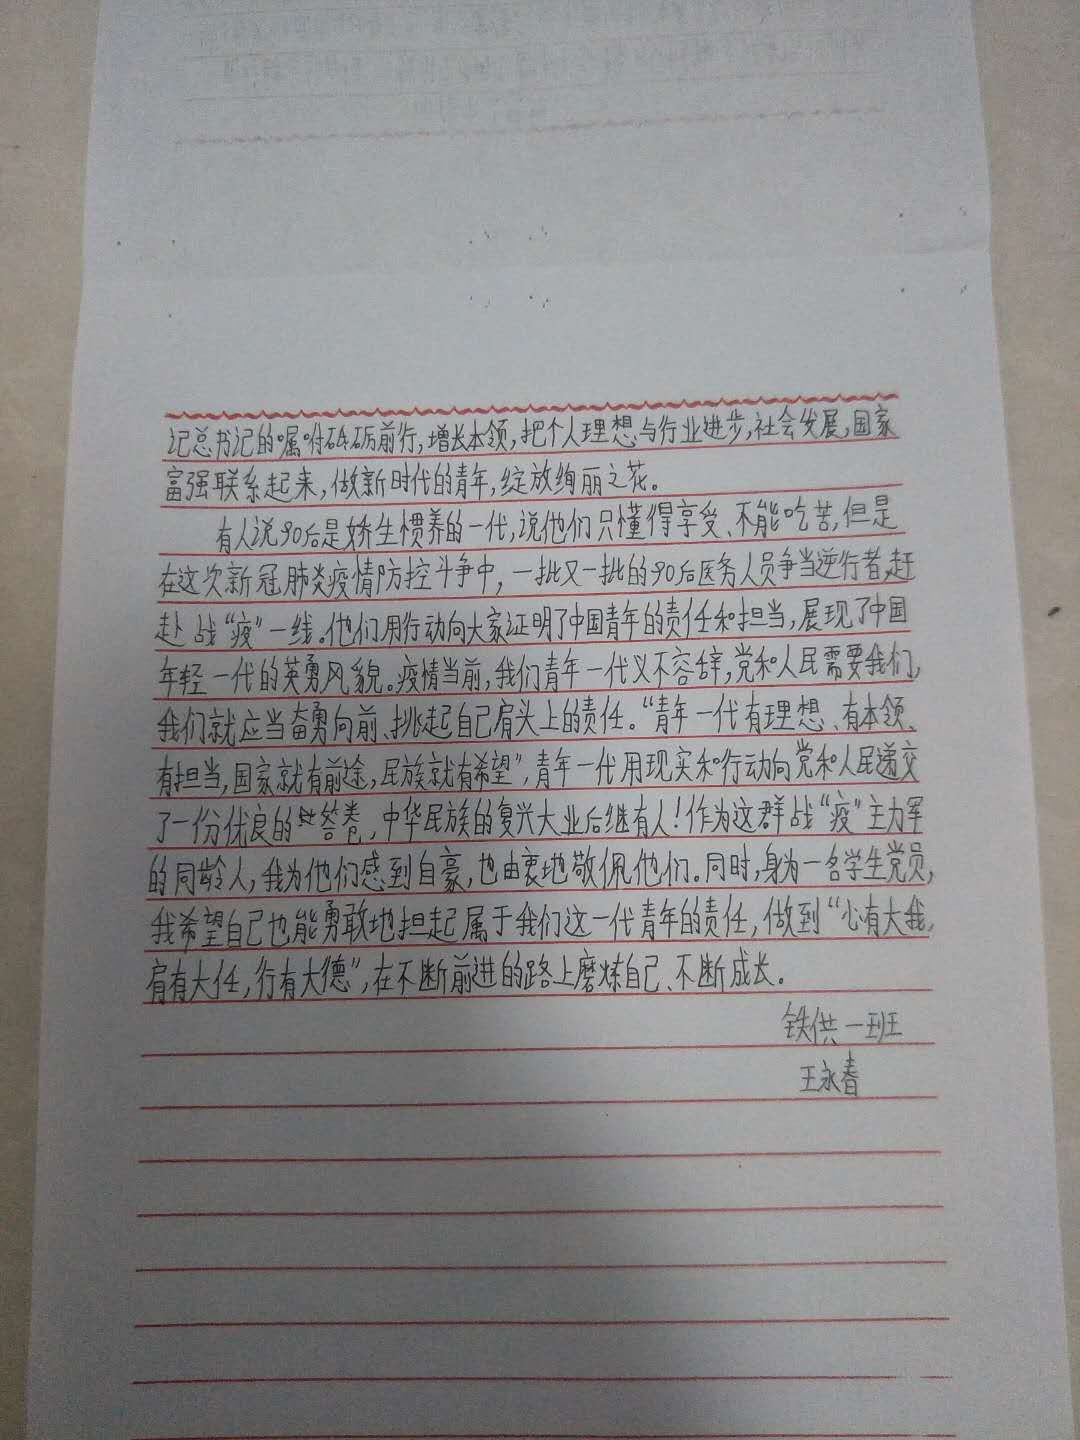 记总书记的嘱咐砥砺前行,增长本领,把个人理想与行业进步,社会发展,国家
富强联系起来,做新时代的青年,绽放绚丽之花。
有人说90后是娇生惯养的一代,说他们只懂得享受、不能吃苦,但是
在这次新冠肺炎疫情防控斗争中,一批又一批的90后医务人员争当逆行者,赶
赴战“疫”一线。他们用行动向大家证明了中国青年的责任和担当,展现了中国
年轻一代的英勇风貌。疫情当前,我们青年一代义不容辞,党和人民需要我们,
我们就应当奋勇向前、挑起自己肩头上的责任。“青年一代有理想、有本领、
有担当,国家就有前途,民族就有希望”,青年一代用现实和行动向党和人民递交
了一份优良的答卷,中华民族的复兴大业后继有人!作为这群战“疫”主力军
的同龄人,我为他们感到自豪,也由衷地敬佩他们。同时,身为一名学生党员,
我希望自己也能勇敢地担起属于我们这一代青年的责任,做到“心有大我,
肩有大任,行有大德”,在不断前进的路上磨炼自己、不断成长。
铁供一班
王永春